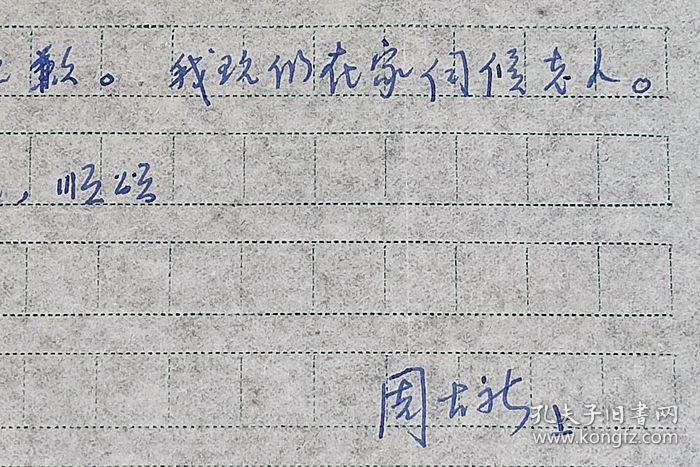 歉。我现仍在家伺候老人。
，顺颂
周大新 上
孔夫子旧书网
www.kongfz.com